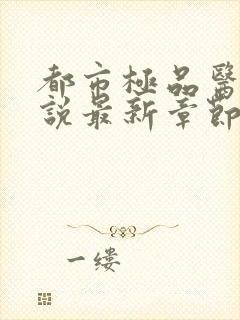 都市極品醫
說最新章節
一缕